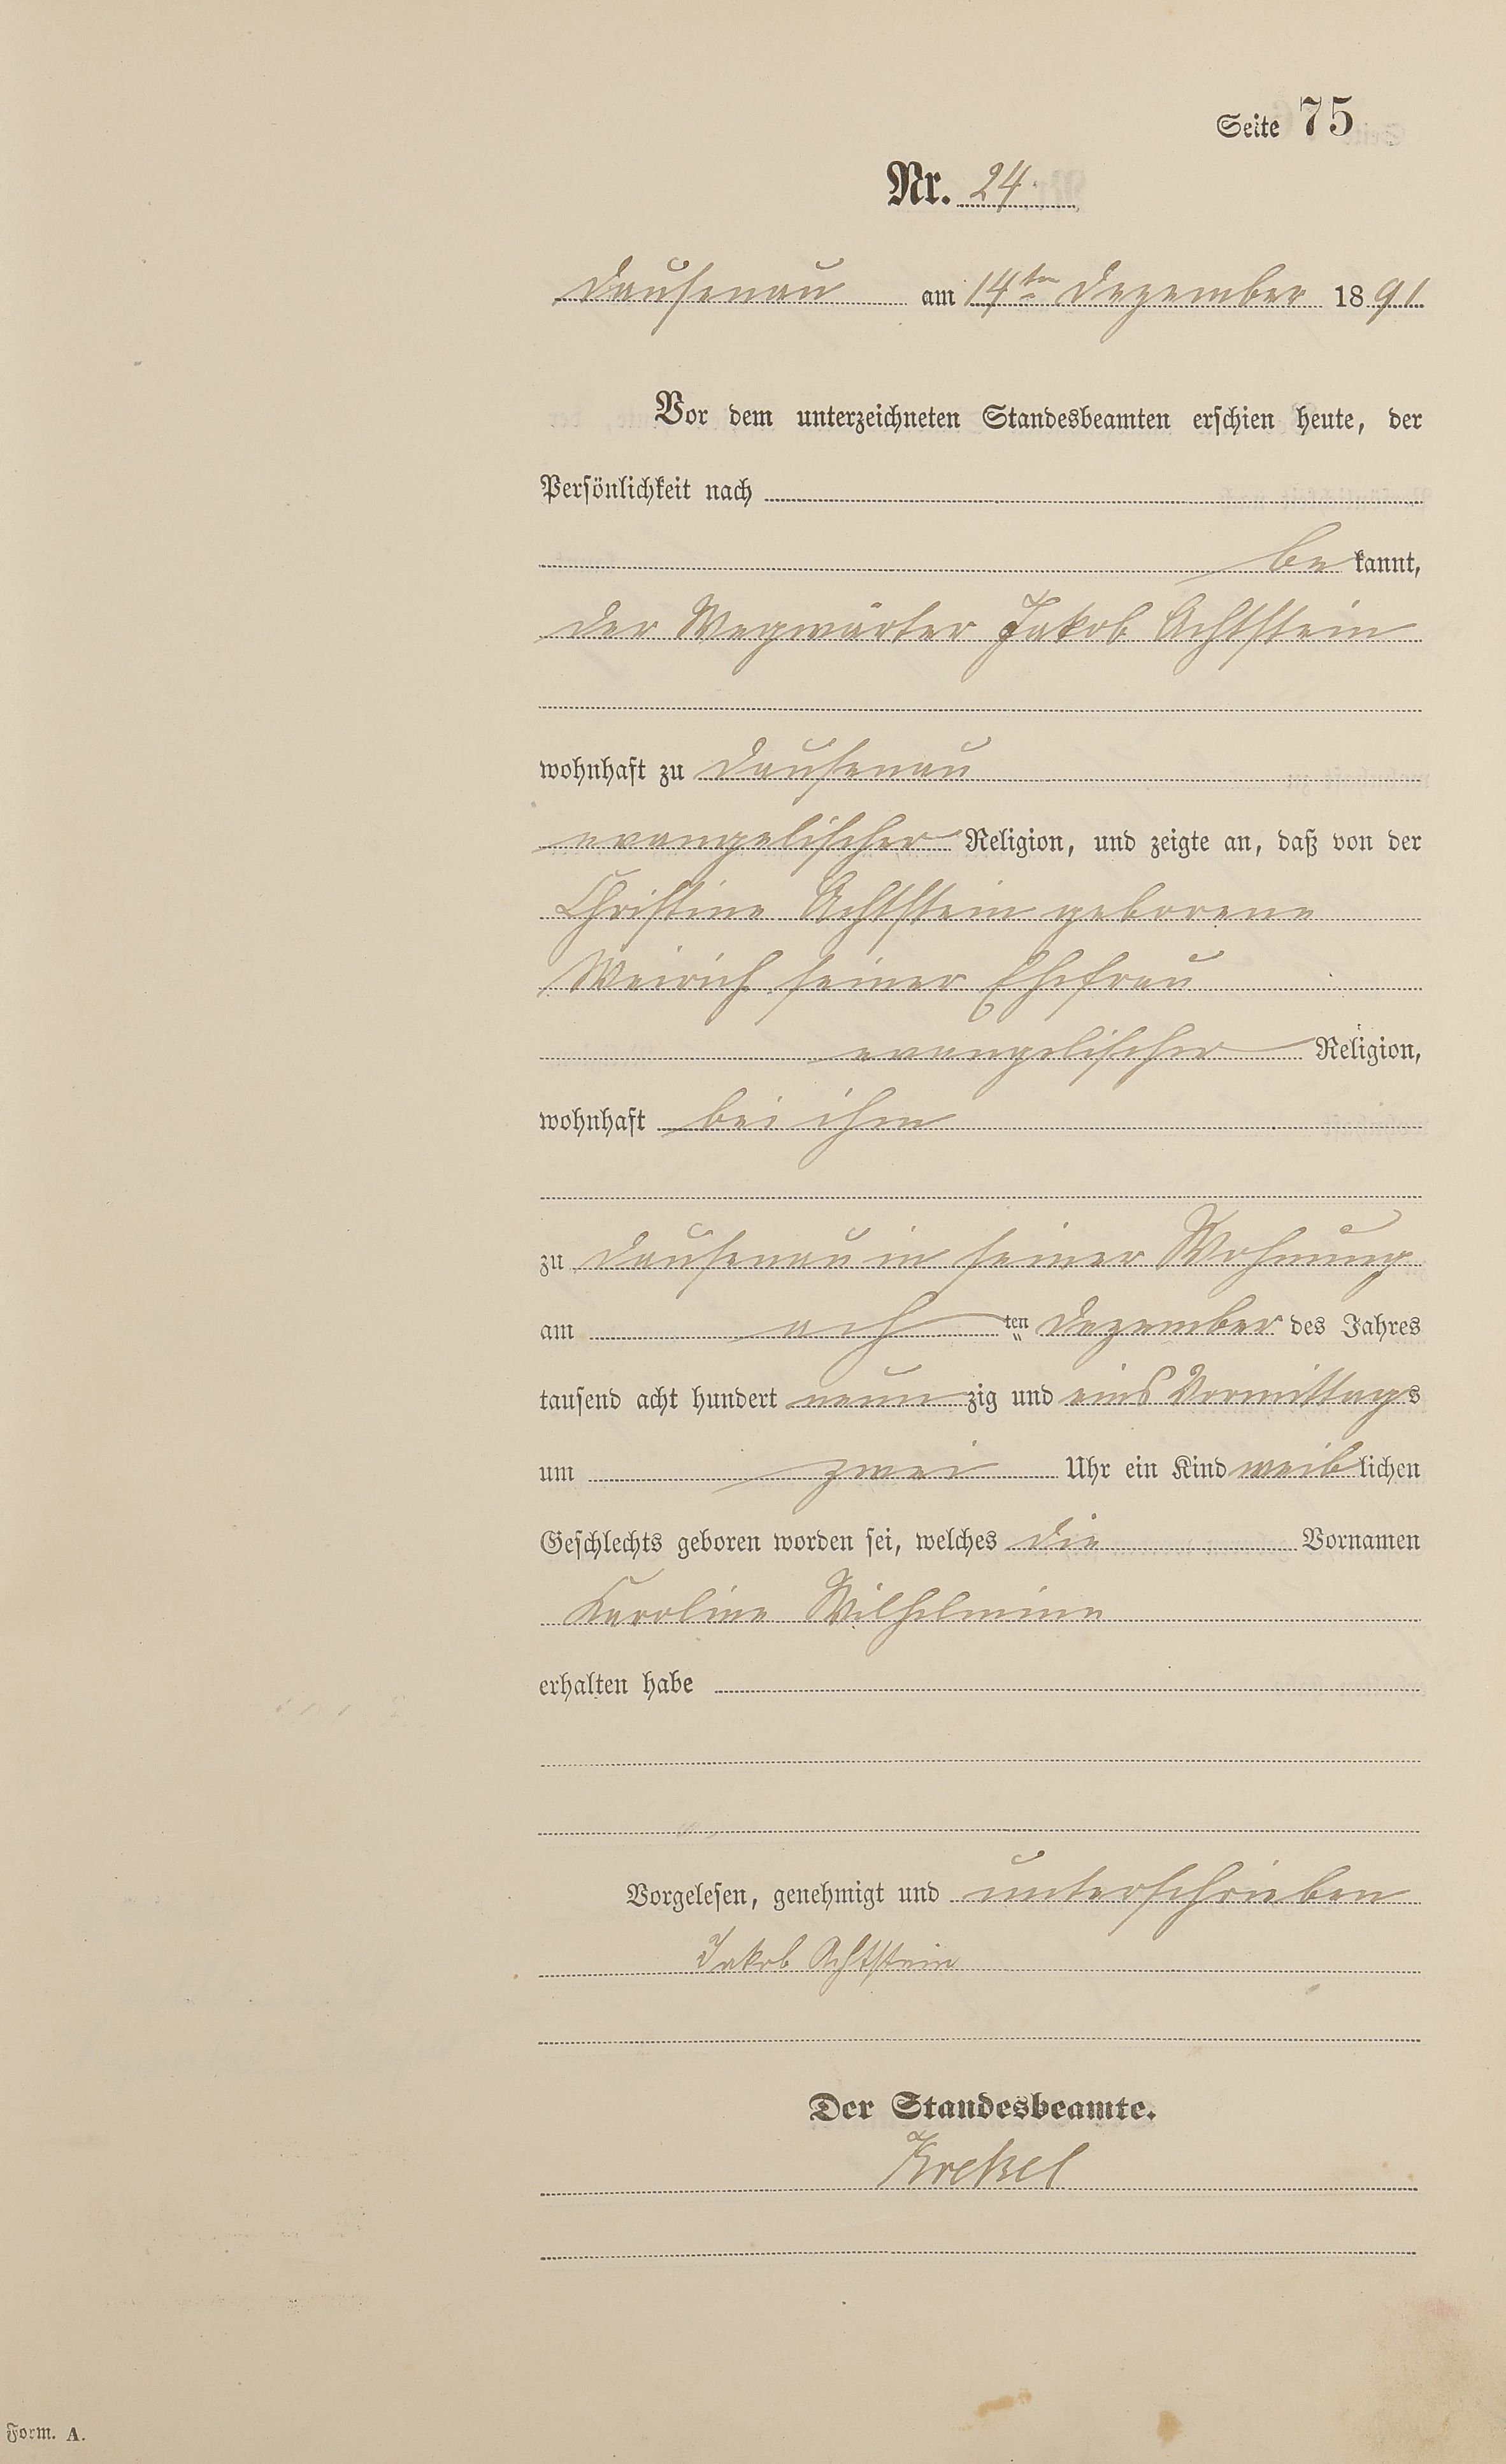 Seite 75
Nr. 24.
Dausenau am 14ten Dezember 1891
Vor dem unterzeichneten Standesbeamten erschien heute, der
Persönlichkeit nach
bekannt,
der Wegwärter Jakob Achtstein
wohnhaft zu Dausenau
evangelischer Religion, und zeigte an, daß von der
Christine Achtstein geborene
Weirich seiner Ehefrau
evangelischer Religion,
wohnhaft bei ihm
zu Dausenau in seiner Wohnung
am ach ten Dezember des Jahres
tausend acht hundert neunzig und eins Vormittags
um zwei Uhr ein Kind weiblichen
Geschlechts geboren worden sei, welches die Vornamen
Karoline Wilhelmine
erhalten habe
Vorgelesen, genehmigt und unterschrieben
Jakob Achtstein
Der Standesbeamte.
Form. A.